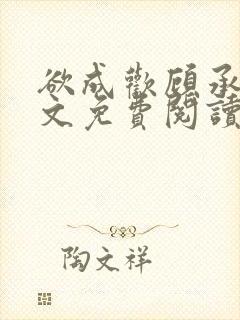 欲成歡顧承
文免費閱讀
陶文祥